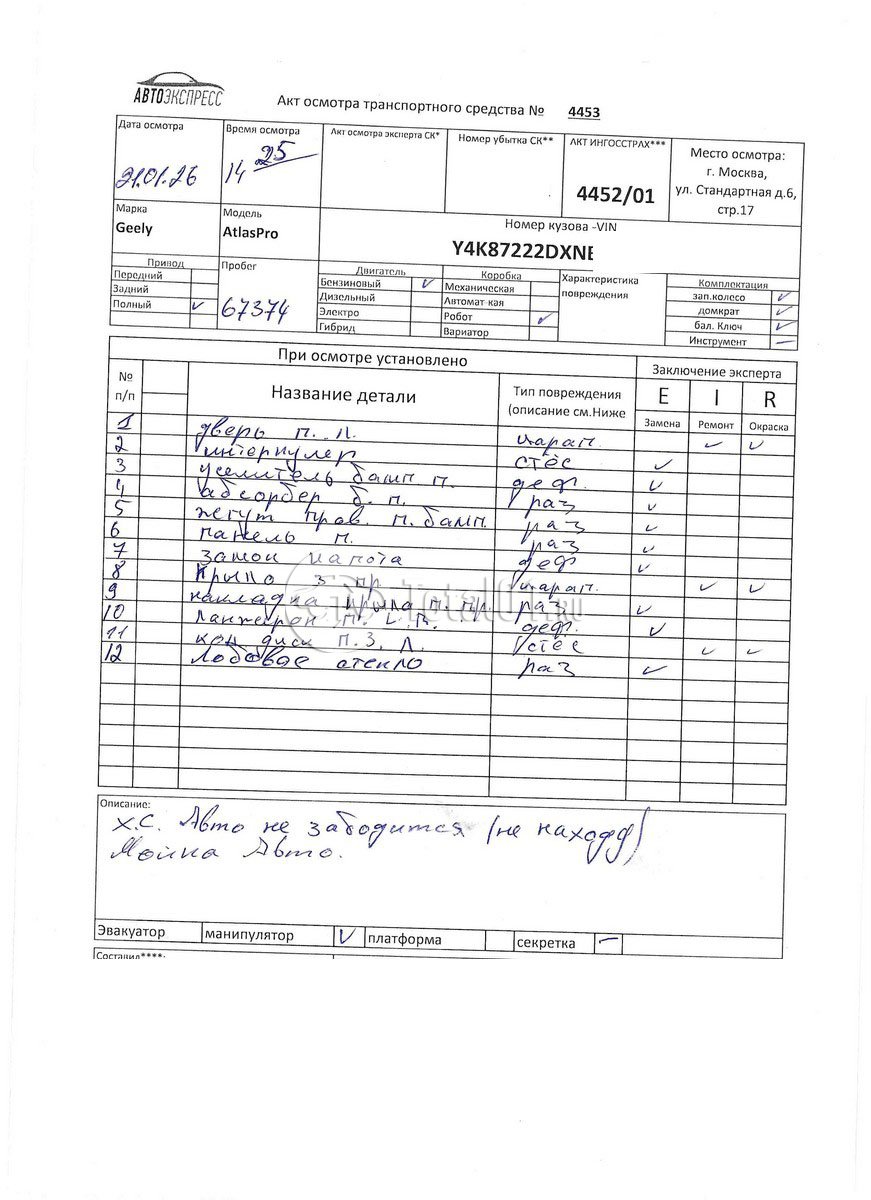 АВТОЭКСПРЕСС
Акт осмотра транспортного средства № 4453
Дата осмотра Время осмотра Акт осмотра эксперта СК* Номер убытка СК** АКТ ИНГОССТРАХ*** Место осмотра:
21.01.26 14 25 4452/01 г. Москва,
ул. Стандартная д.6,
стр.17
Марка Модель Номер кузова -VIN
Geely AtlasPro Y4K87222DXNE
Привод Пробег Двигатель Коробка Характеристика повреждения Комплектация
Передний Бензиновый ✓ Механическая зап.колесо ✓
Задний Дизельный Автомат кая домкрат ✓
Полный ✓ 67374 Электро Робот ✓ бал. Ключ ✓
Гибрид Вариатор Инструмент —
При осмотре установлено Заключение эксперта
№ п/п Название детали Тип повреждения (описание см.Ниже E I R
Замена Ремонт Окраска
1 дверь п. л. царап. ✓ ✓
2 интеркулер стёс ✓
3 усилитель бамп п. деф. ✓
4 абсорбер б. п. раз ✓
5 жгут пров. п. бамп. раз ✓
6 панель п. раз ✓
7 замок капота деф ✓
8 крыло з пр царап. ✓ ✓
9 накладка крыла п. пр. раз ✓
10 Лонжерон п. деф. ✓
11 кол. диск п.з. л. стёс ✓ ✓
12 Лобовое стекло раз ✓
TotalOt.ru
Описание:
х.с. Авто не заводится (не на ходу)
Мойка Авто.
Эвакуатор манипулятор ✓ платформа секретка —
Составил****: